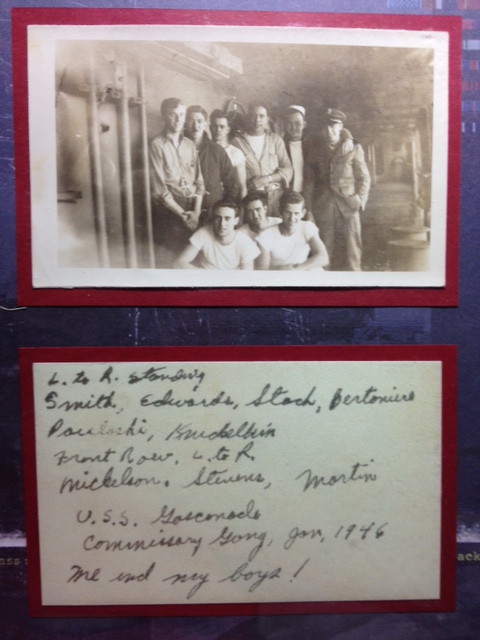 L. to R. standing
Smith, Edwards, Stach, Bertoniere
Front Row, L. to R.
Mickelson, Stevens, Martin
U.S.S. Gasconade
Commissary Gang, Jan, 1946
Me and my boys!